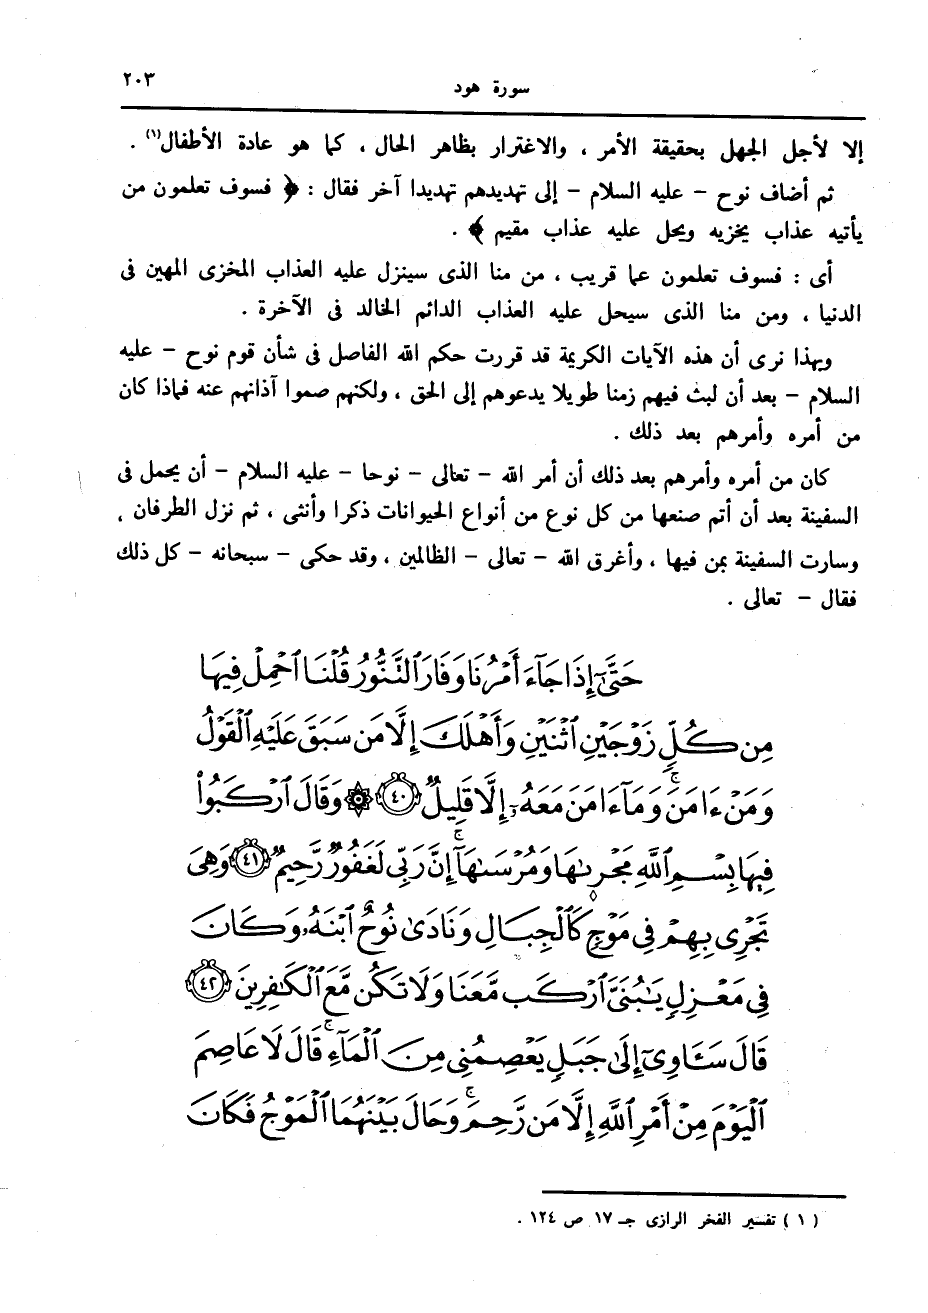 سورة هود ٢٠٣
إلا لأجل الجهل بحقيقة الأمر ، والاغترار بظاهر الحال ، كما هو عادة الأطفال(١) .
ثم أضاف نوح – عليه السلام – إلى تهديدهم تهديدا آخر فقال : ﴿ فسوف تعلمون من
يأتيه عذاب يخزيه ويحل عليه عذاب مقيم ﴾ .
أى : فسوف تعلمون عما قريب ، من منا الذى سينزل عليه العذاب المخزى المهين فى
الدنيا ، ومن منا الذى سيحل عليه العذاب الدائم الخالد فى الآخرة .
وبهذا نرى أن هذه الآيات الكريمة قد قررت حكم الله الفاصل فى شأن قوم نوح – عليه
السلام – بعد أن لبث فيهم زمنا طويلا يدعوهم إلى الحق ، ولكنهم صموا آذانهم عنه فماذا كان
من أمره وأمرهم بعد ذلك .
كان من أمره وأمرهم بعد ذلك أن أمر الله – تعالى – نوحا – عليه السلام – أن يحمل فى
السفينة بعد أن أتم صنعها من كل نوع من أنواع الحيوانات ذكرا وأنثى ، ثم نزل الطرفان ,
وسارت السفينة بمن فيها ، وأغرق الله – تعالى – الظالمين ، وقد حكى – سبحانه – كل ذلك
فقال – تعالى .
حَتَّىٰٓ إِذَا جَآءَ أَمْرُنَا وَفَارَ ٱلتَّنُّورُ قُلْنَا ٱحْمِلْ فِيهَا
مِن كُلٍّ زَوْجَيْنِ ٱثْنَيْنِ وَأَهْلَكَ إِلَّا مَن سَبَقَ عَلَيْهِ ٱلْقَوْلُ
وَمَنْ ءَامَنَ ۚ وَمَآ ءَامَنَ مَعَهُۥٓ إِلَّا قَلِيلٌ ٤٠ ۞ وَقَالَ ٱرْكَبُوا۟
فِيهَا بِسْمِ ٱللَّهِ مَجْر۪ىٰهَا وَمُرْسَىٰهَآ ۚ إِنَّ رَبِّى لَغَفُورٌ رَّحِيمٌ ٤١ وَهِىَ
تَجْرِى بِهِمْ فِى مَوْجٍ كَٱلْجِبَالِ وَنَادَىٰ نُوحٌ ٱبْنَهُۥ وَكَانَ
فِى مَعْزِلٍ يَٰبُنَىَّ ٱرْكَب مَّعَنَا وَلَا تَكُن مَّعَ ٱلْكَٰفِرِينَ ٤٢
قَالَ سَـَٔاوِىٓ إِلَىٰ جَبَلٍ يَعْصِمُنِى مِنَ ٱلْمَآءِ ۚ قَالَ لَا عَاصِمَ
ٱلْيَوْمَ مِنْ أَمْرِ ٱللَّهِ إِلَّا مَن رَّحِمَ ۚ وَحَالَ بَيْنَهُمَا ٱلْمَوْجُ فَكَانَ
( ١ ) تفسير الفخر الرازى جـ ١٧ ص ١٢٤ .